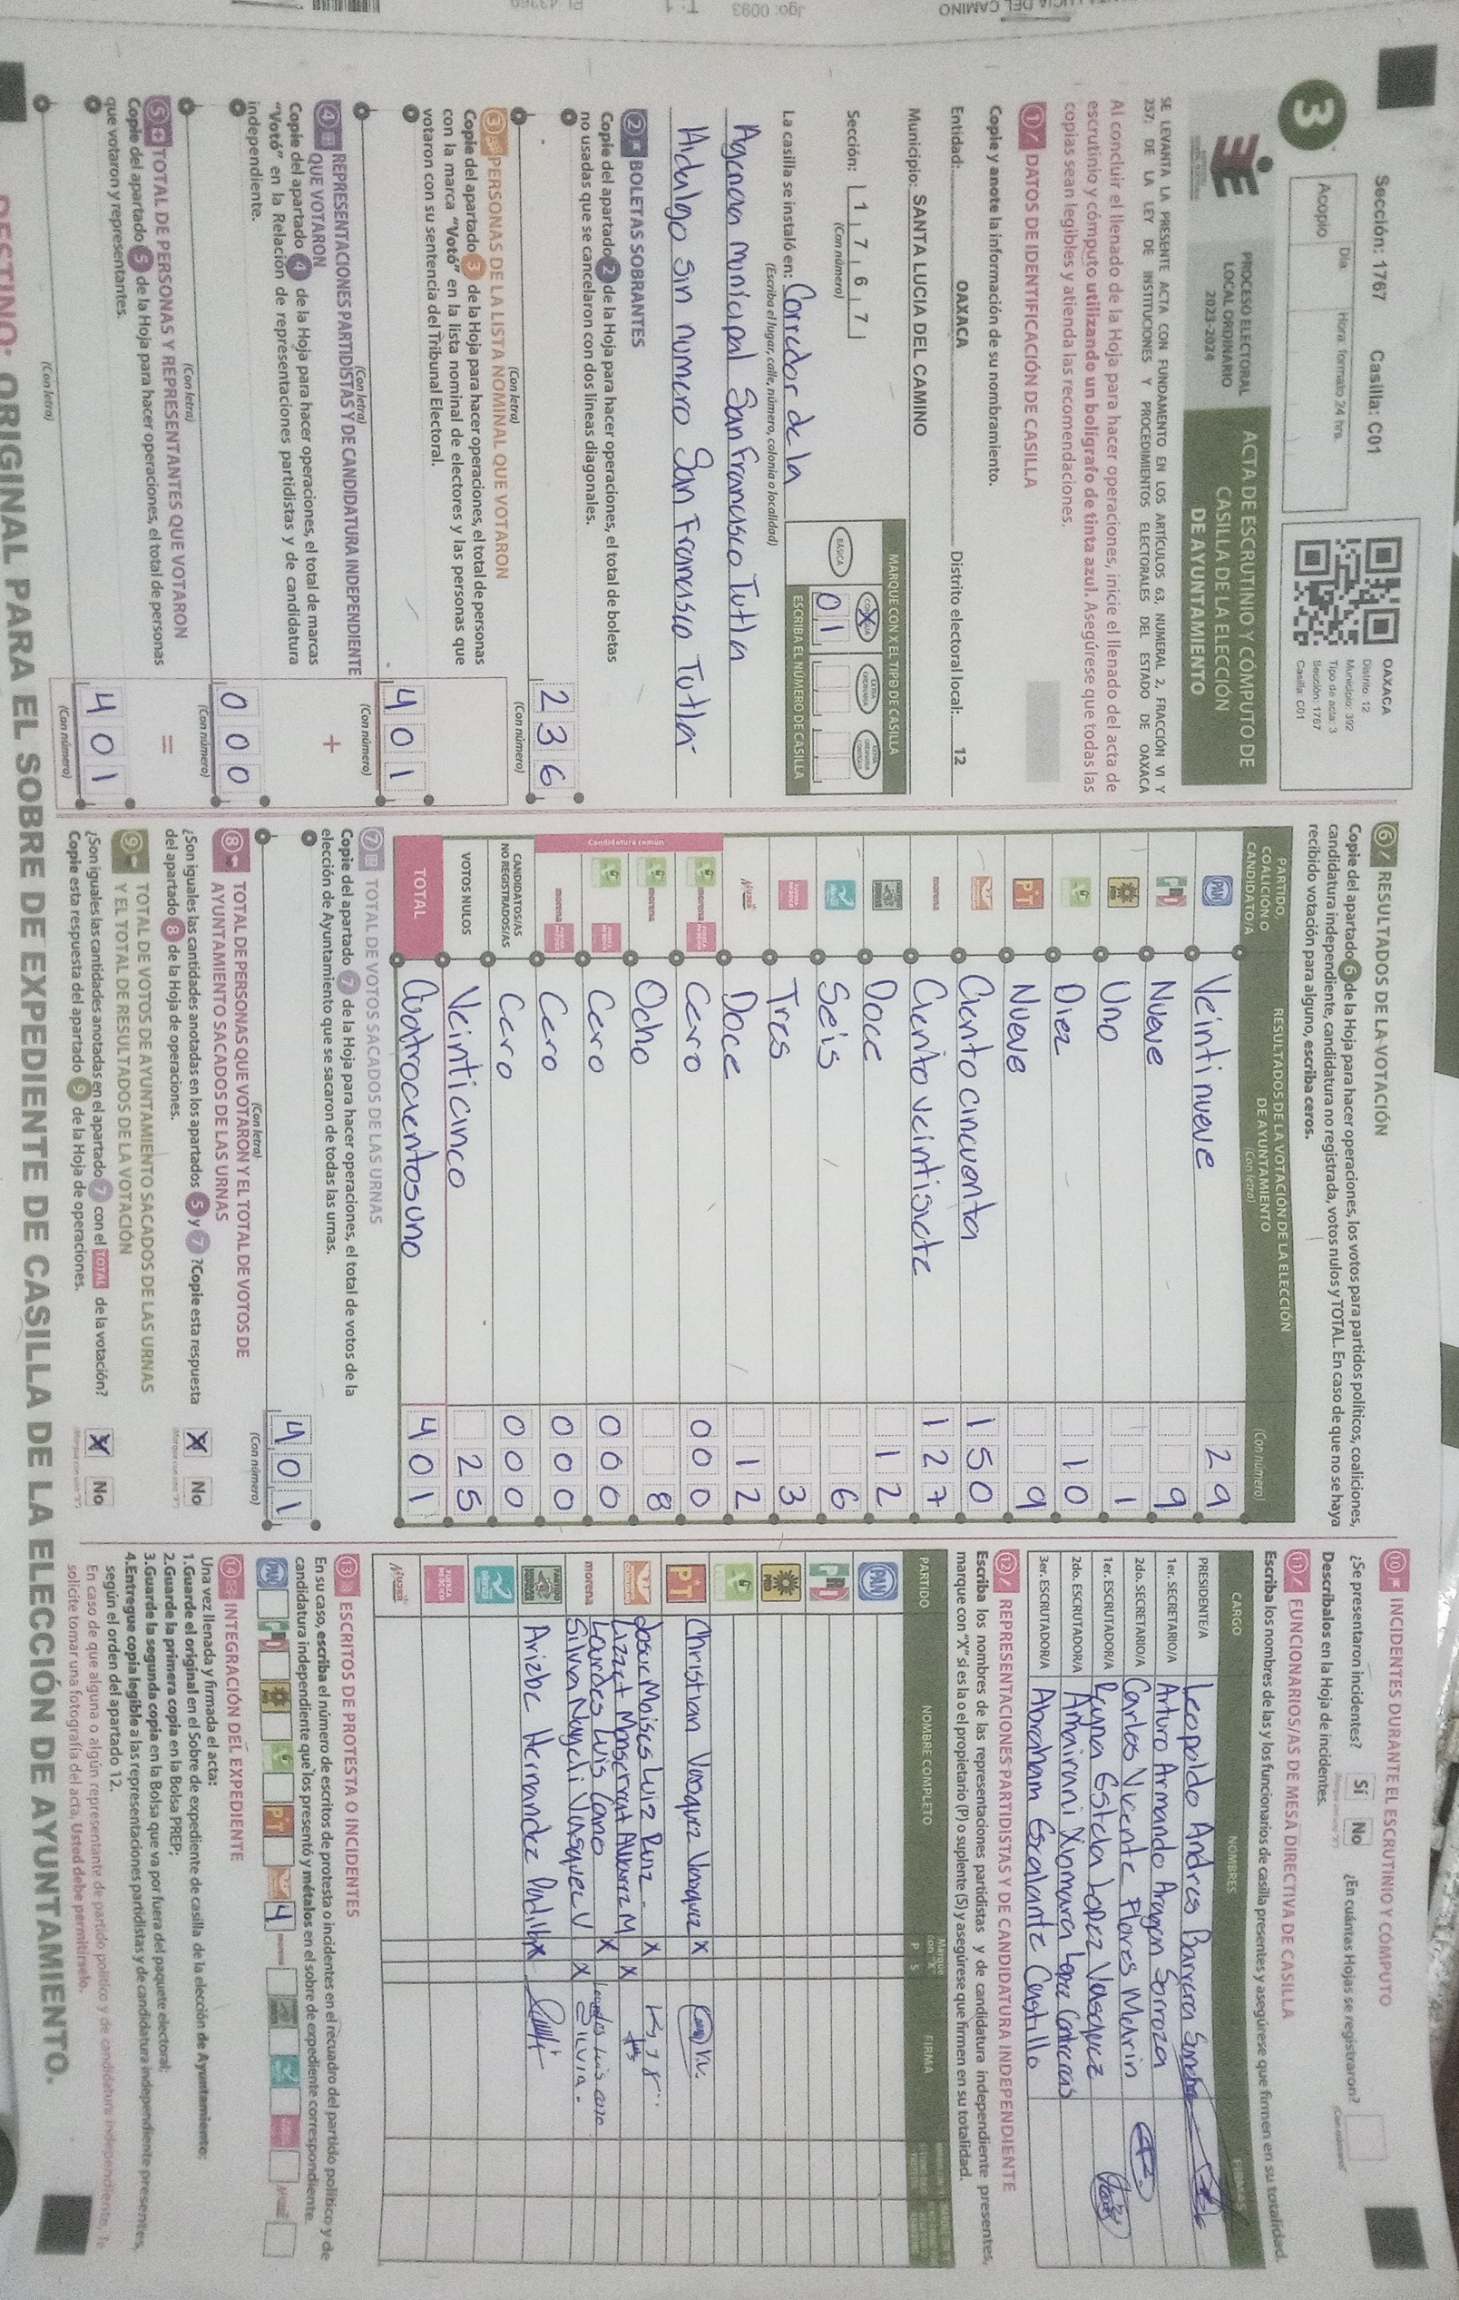 Sección: 1767 Casilla: C01
3
Día Hora: formato 24 hrs.
Acopio
OAXACA
Distrito: 12
Municipio: 392
Tipo de acta: 3
Sección: 1767
Casilla: C01
PROCESO ELECTORAL
LOCAL ORDINARIO
2023-2024
ACTA DE ESCRUTINIO Y CÓMPUTO DE
CASILLA DE LA ELECCIÓN
DE AYUNTAMIENTO
SE LEVANTA LA PRESENTE ACTA CON FUNDAMENTO EN LOS ARTÍCULOS 63, NUMERAL 2, FRACCIÓN VI Y
257; DE LA LEY DE INSTITUCIONES Y PROCEDIMIENTOS ELECTORALES DEL ESTADO DE OAXACA
Al concluir el llenado de la Hoja para hacer operaciones, inicie el llenado del acta de
escrutinio y cómputo utilizando un bolígrafo de tinta azul. Asegúrese que todas las
copias sean legibles y atienda las recomendaciones.
1 DATOS DE IDENTIFICACIÓN DE CASILLA
Copie y anote la información de su nombramiento.
Entidad: OAXACA Distrito electoral local: 12
Municipio: SANTA LUCIA DEL CAMINO
Sección: 1 7 6 7
(Con número)
MARQUE CON X EL TIPO DE CASILLA
BÁSICA
0 1
ESCRIBA EL NÚMERO DE CASILLA
La casilla se instaló en: Corredor de la
(Escriba el lugar, calle, número, colonia o localidad)
Agencia municipal San Francisco Tutla
Hidalgo sin numero San Francisco Tutla
2 BOLETAS SOBRANTES
Copie del apartado 2 de la Hoja para hacer operaciones, el total de boletas
no usadas que se cancelaron con dos líneas diagonales.
2 3 6
(Con letra) (Con número)
3 PERSONAS DE LA LISTA NOMINAL QUE VOTARON
Copie del apartado 3 de la Hoja para hacer operaciones, el total de personas
con la marca "Votó" en la lista nominal de electores y las personas que
votaron con su sentencia del Tribunal Electoral.
4 0 1
(Con letra) (Con número)
4 REPRESENTACIONES PARTIDISTAS Y DE CANDIDATURA INDEPENDIENTE
QUE VOTARON
+
Copie del apartado 4 de la Hoja para hacer operaciones, el total de marcas
"Votó" en la Relación de representaciones partidistas y de candidatura
independiente.
0 0 0
(Con letra) (Con número)
5 TOTAL DE PERSONAS Y REPRESENTANTES QUE VOTARON
=
Copie del apartado 5 de la Hoja para hacer operaciones, el total de personas
que votaron y representantes.
4 0 1
(Con letra) (Con número)
6 RESULTADOS DE LA VOTACIÓN
Copie del apartado 6 de la Hoja para hacer operaciones, los votos para partidos políticos, coaliciones,
candidatura independiente, candidatura no registrada, votos nulos y TOTAL. En caso de que no se haya
recibido votación para alguno, escriba ceros.
PARTIDO,
COALICIÓN O
CANDIDATO/A
RESULTADOS DE LA VOTACIÓN DE LA ELECCIÓN
DE AYUNTAMIENTO
(Con letra) (Con número)
PAN Veintinueve 2 9
PRI Nueve 9
PRD Uno 1
Diez 1 0
PT Nueve 9
Ciento cincuenta 1 5 0
morena Ciento veintisiete 1 2 7
Doce 1 2
Seis 6
Tres 3
Doce 1 2
morena Cero 0 0 0
morena Ocho 8
Cero 0 0 0
morena Cero 0 0 0
Candidatura común
CANDIDATOS/AS
NO REGISTRADOS/AS
Cero 0 0 0
VOTOS NULOS Veinticinco 2 5
TOTAL Cuatrocientos uno 4 0 1
7 TOTAL DE VOTOS SACADOS DE LAS URNAS
Copie del apartado 7 de la Hoja para hacer operaciones, el total de votos de la
elección de Ayuntamiento que se sacaron de todas las urnas.
4 0 1
(Con letra) (Con número)
8 TOTAL DE PERSONAS QUE VOTARON Y EL TOTAL DE VOTOS DE
AYUNTAMIENTO SACADOS DE LAS URNAS
¿Son iguales las cantidades anotadas en los apartados 5 y 7 ?Copie esta respuesta
del apartado 8 de la Hoja de operaciones.
X No
9 TOTAL DE VOTOS DE AYUNTAMIENTO SACADOS DE LAS URNAS
Y EL TOTAL DE RESULTADOS DE LA VOTACIÓN
¿Son iguales las cantidades anotadas en el apartado 7 con el TOTAL de la votación?
Copie esta respuesta del apartado 9 de la Hoja de operaciones.
X No
10 INCIDENTES DURANTE EL ESCRUTINIO Y CÓMPUTO
¿Se presentaron incidentes? Sí No ¿En cuántas Hojas se registraron?
Descríbalos en la Hoja de incidentes.
11 FUNCIONARIOS/AS DE MESA DIRECTIVA DE CASILLA
Escriba los nombres de las y los funcionarios de casilla presentes y asegúrese que firmen en su totalidad.
CARGO NOMBRES FIRMAS
PRESIDENTE/A Leopoldo Andres Barrera Sanchez
1er. SECRETARIO/A Arturo Armando Aragon Sorroza
2do. SECRETARIO/A Carlos Vicente Flores Medrin
1er. ESCRUTADOR/A Reyna Estela Lopez Vasquez
2do. ESCRUTADOR/A Amairani Xiomara Lopez Contreras
3er. ESCRUTADOR/A Abraham Escalante Castillo
12 REPRESENTACIONES PARTIDISTAS Y DE CANDIDATURA INDEPENDIENTE
Escriba los nombres de las representaciones partidistas y de candidatura independiente presentes,
marque con "X" si es la o el propietario (P) o suplente (S) y asegúrese que firmen en su totalidad.
PARTIDO NOMBRE COMPLETO Marque con "X" P S FIRMA
PAN
PRI
PRD
PT Christian Vasquez Vasquez X
Josue Moises Luiz Ruiz X
Lizzet Monserrat Alvarez M X
morena Lourdes Luis Cano X Lourdes Luis cano
Silvia Nayeli Vasquez V X Silvia
Arizbe Hernandez Padilla X
13 ESCRITOS DE PROTESTA O INCIDENTES
En su caso, escriba el número de escritos de protesta o incidentes en el recuadro del partido político y de
candidatura independiente que los presentó y métalos en el sobre de expediente correspondiente.
PAN PRI PRD PT 4 morena
14 INTEGRACIÓN DEL EXPEDIENTE
Una vez llenada y firmada el acta:
1.Guarde el original en el Sobre de expediente de casilla de la elección de Ayuntamiento;
2.Guarde la primera copia en la Bolsa PREP;
3.Guarde la segunda copia en la Bolsa que va por fuera del paquete electoral;
4.Entregue copia legible a las representaciones partidistas y de candidatura independiente presentes,
según el orden del apartado 12.
En caso de que alguna o algún representante de partido político y de candidatura independiente, le
solicite tomar una fotografía del acta, Usted debe permitírselo.
DESTINO: ORIGINAL PARA EL SOBRE DE EXPEDIENTE DE CASILLA DE LA ELECCIÓN DE AYUNTAMIENTO.